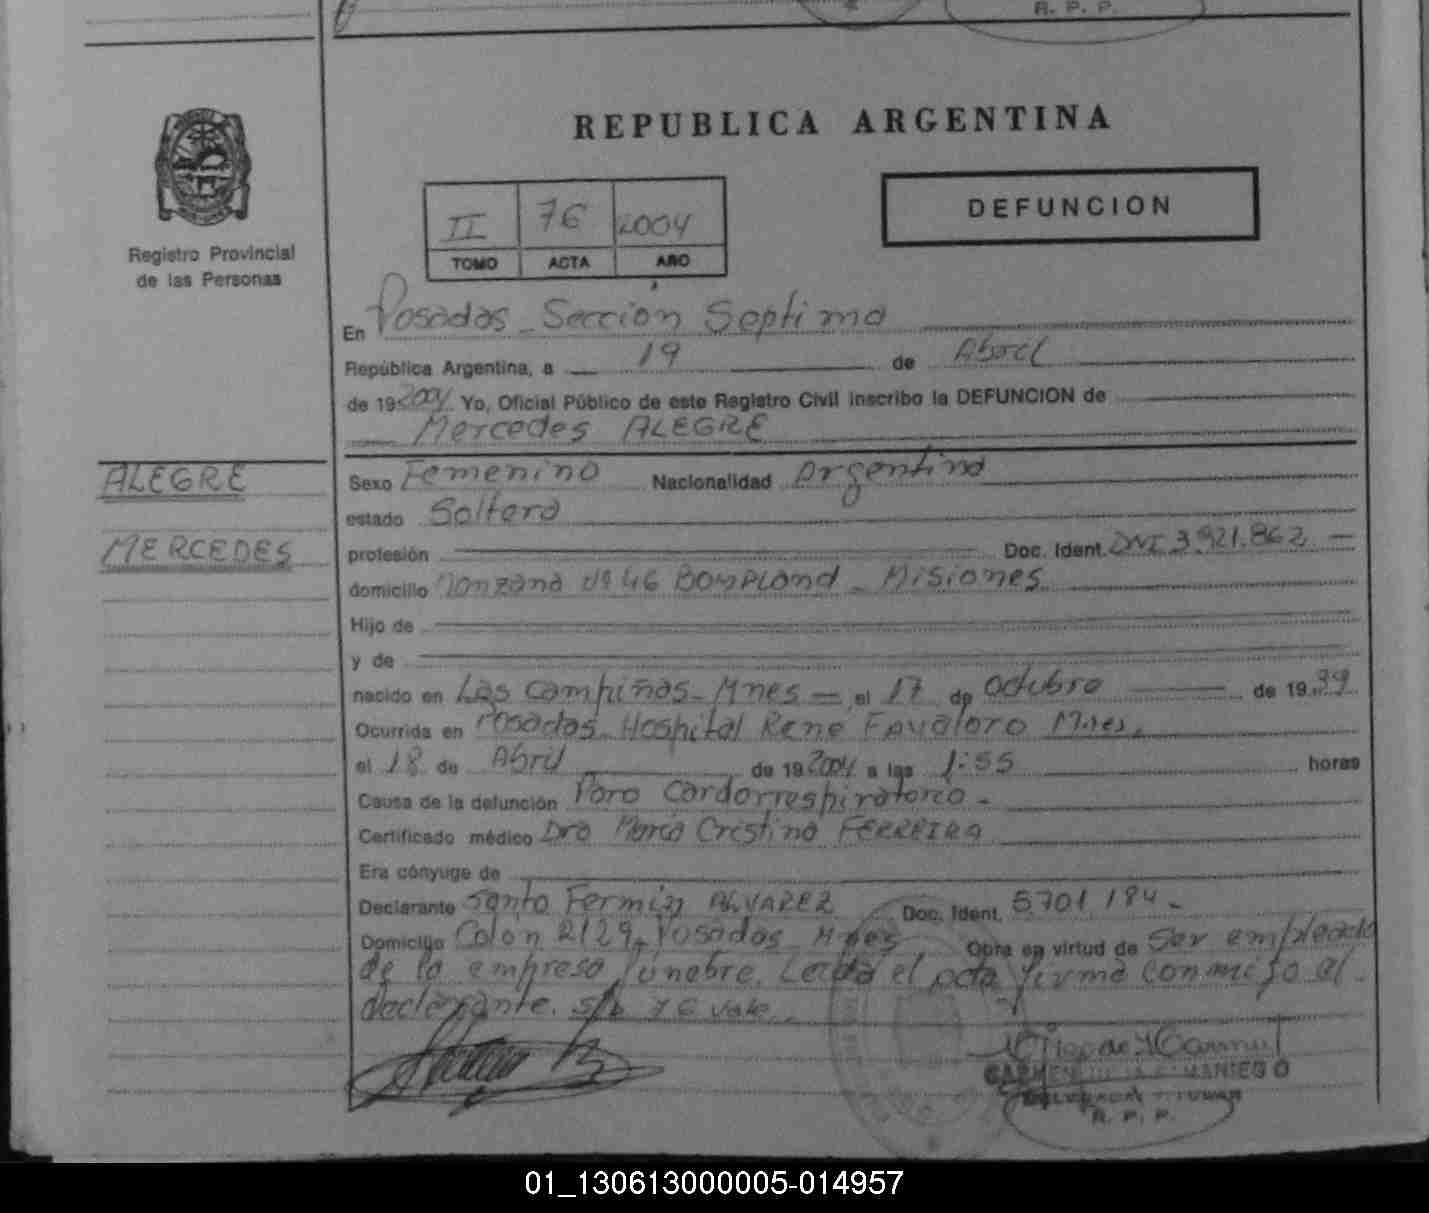 R. P. P.
REPUBLICA ARGENTINA
DEFUNCION
II 76 2004
TOMO ACTA AÑO
Registro Provincial
de las Personas
En Posadas Sección Septima
República Argentina, a 19 de Abril
de 19 2004 Yo, Oficial Público de este Registro Civil inscribo la DEFUNCION de
Mercedes ALEGRE
ALEGRE
MERCEDES
Sexo Femenino Nacionalidad Argentina
estado Soltera
profesión Doc. Ident. DNI 3.921.862
domicilio Manzana Nº 46 BOMPLAND - Misiones
Hijo de
y de
nacido en Las Campiñas - Mnes - el 17 de Octubre de 19 39
Ocurrida en Posadas Hospital Rene Favaloro Mnes.
el 18 de Abril de 19 2004 a las 1:55 horas
Causa de la defunción Paro Cardorrespiratorio -
Certificado médico Dra Maria Cristina FERREIRA
Era cónyuge de
Declarante Santo Fermin ALVAREZ Doc. Ident. 5701184 -
Domicilio Colon 2129, Posadas Mnes Obra en virtud de Ser empleado
de la empresa funebre. Leida el acta firma conmigo el
declarante. s/b 76 vale
R. P. P.
01_130613000005-014957